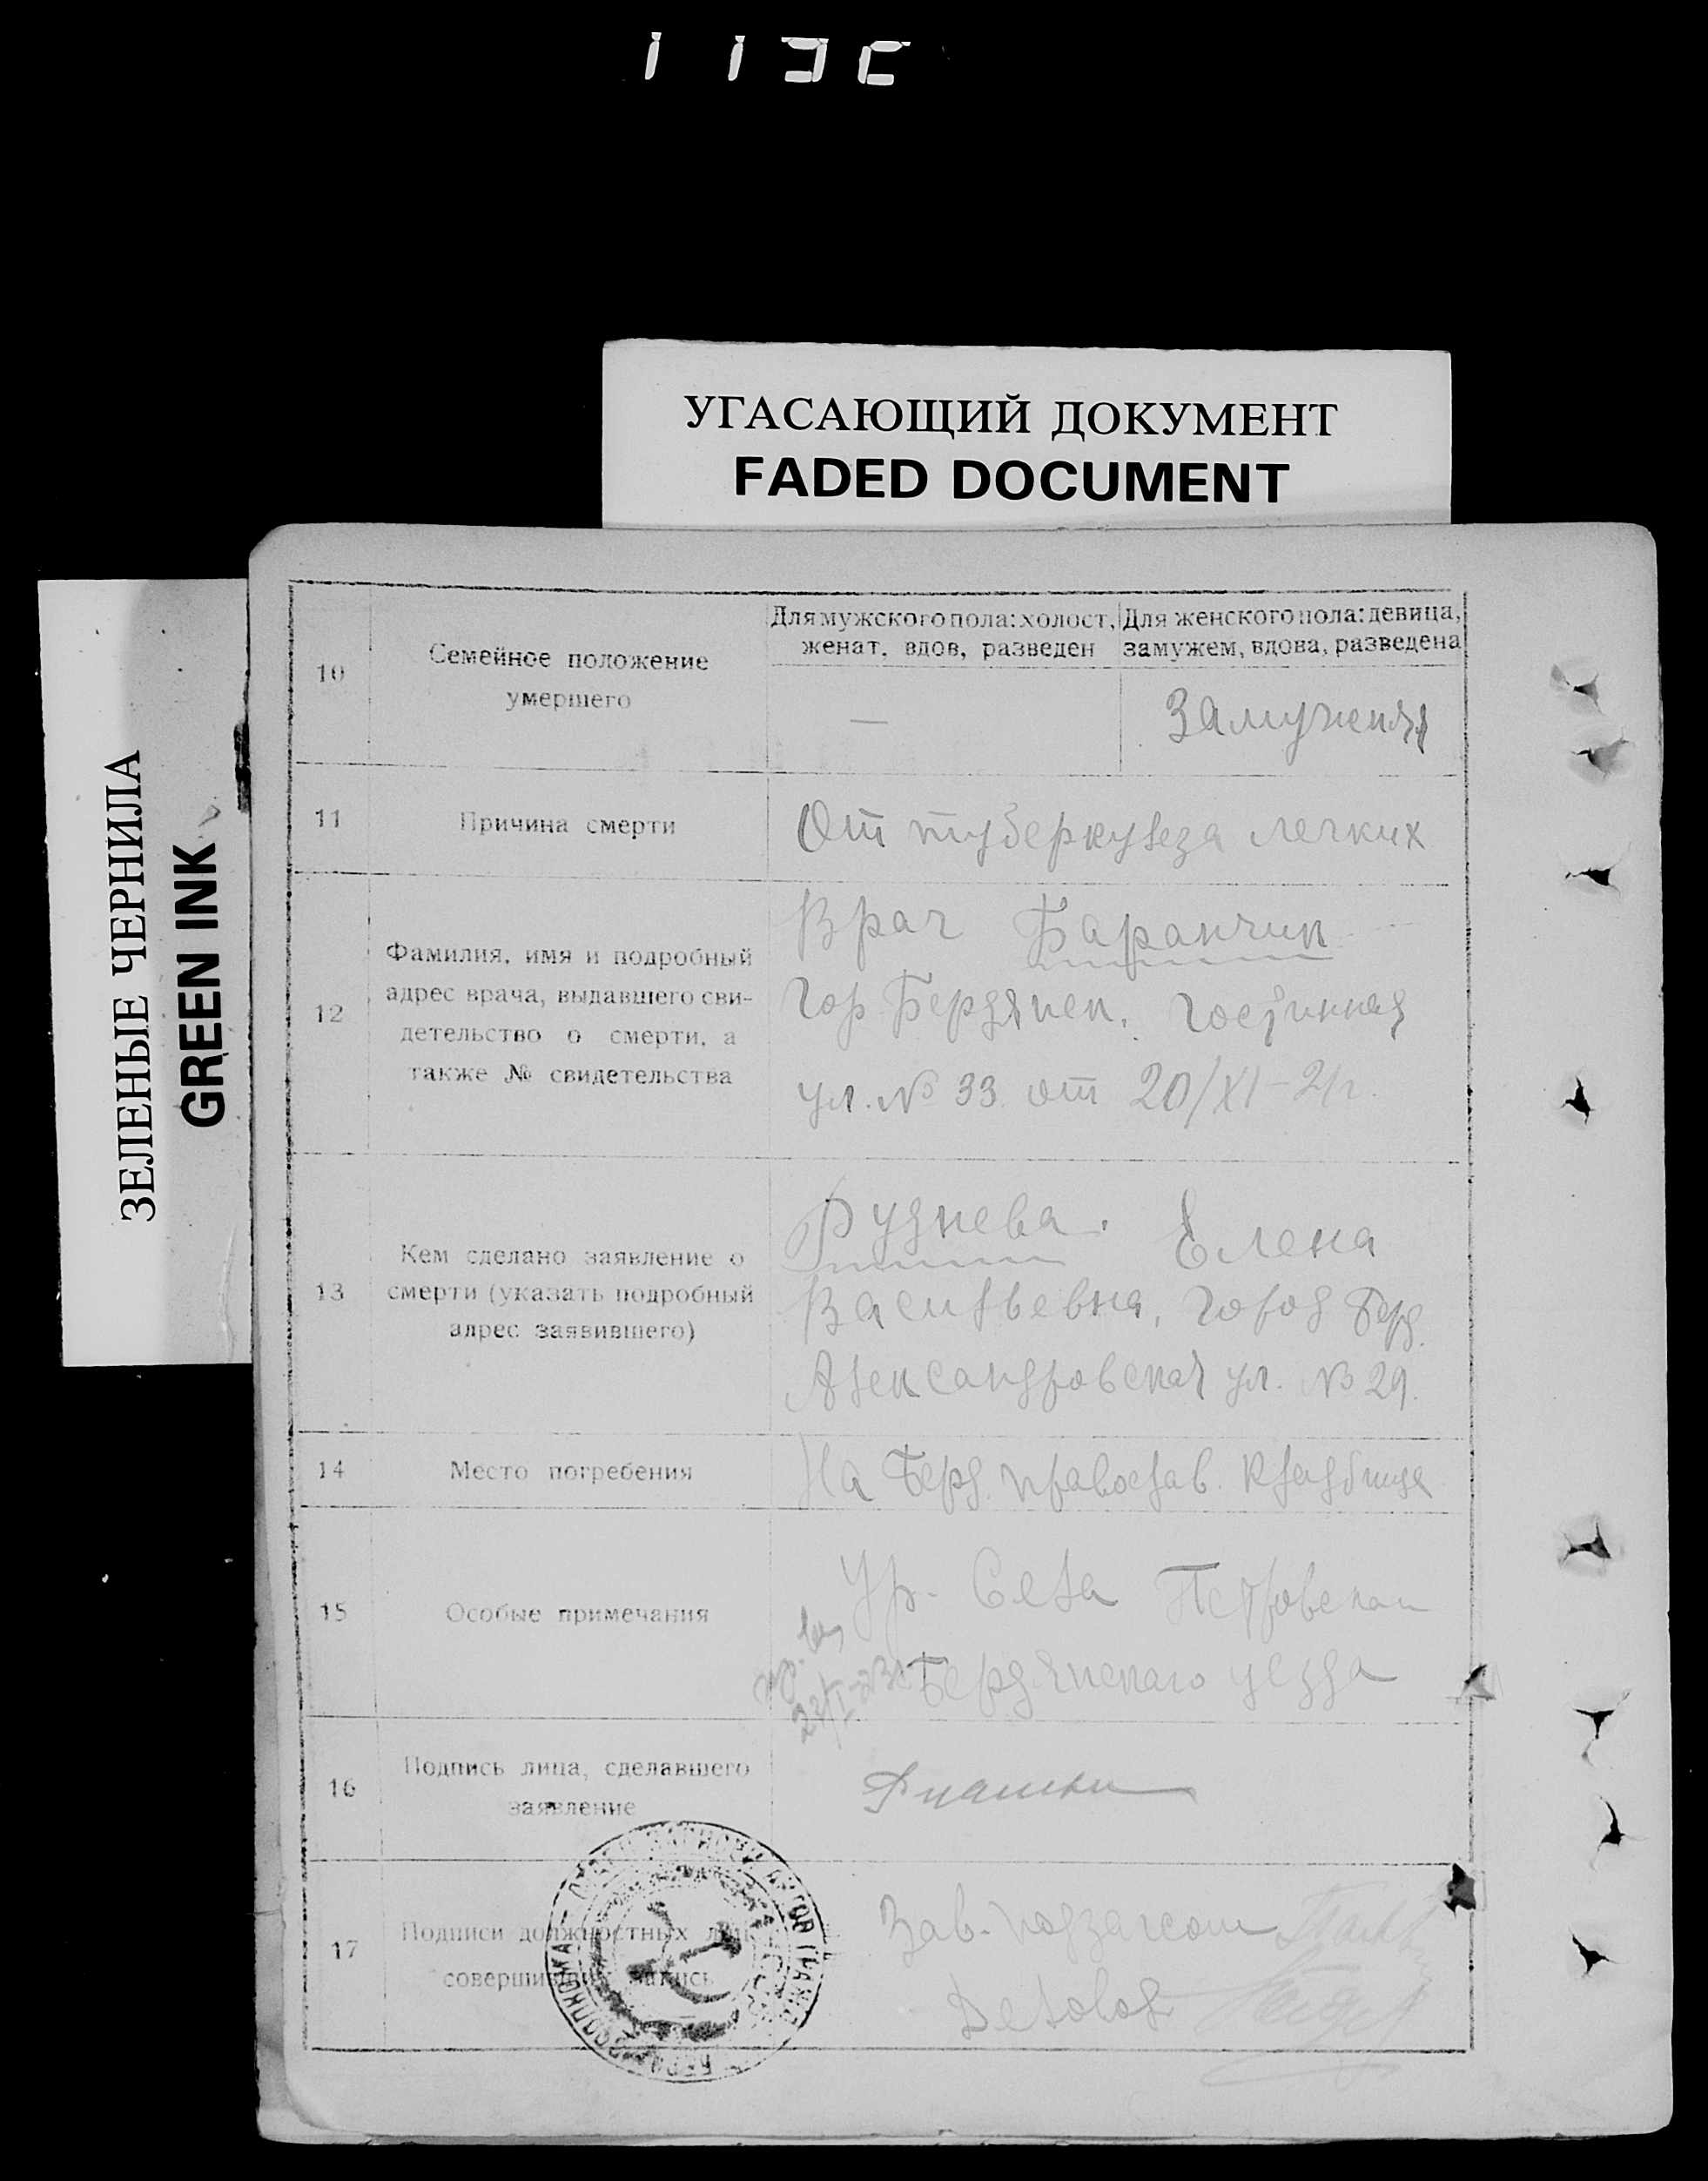 УГАСАЮЩИЙ ДОКУМЕНТ
FADED DOCUMENT
ЗЕЛЕНЫЕ ЧЕРНИЛА
GREEN INK
10
Семейное положение
умершего
Для мужского пола: холост,
женат, вдов, разведен
Для женского пола: девица,
замужем, вдова, разведена
—
Замужняя
11
Причина смерти
От туберкулеза легких
12
Фамилия, имя и подробный
адрес врача, выдавшего сви-
детельство о смерти, а
также № свидетельства
Врач Баранчик
Гор. Бердянск, Гостинная
ул. № 33 от 20/XI-21г.
13
Кем сделано заявление о
смерти (указать подробный
адрес заявившего)
Руднева. Елена
Васильевна, город Берд.
Александровская ул. № 29.
14
Место погребения
На Берд. православ. кладбище
15
Особые примечания
Ур. села Петровскаго
Бердянскаго уезда
16
Подпись лица, сделавшего
заявление
17
Подписи должностных лиц,
совершивших запись
Зав. подзагсом
Деловод